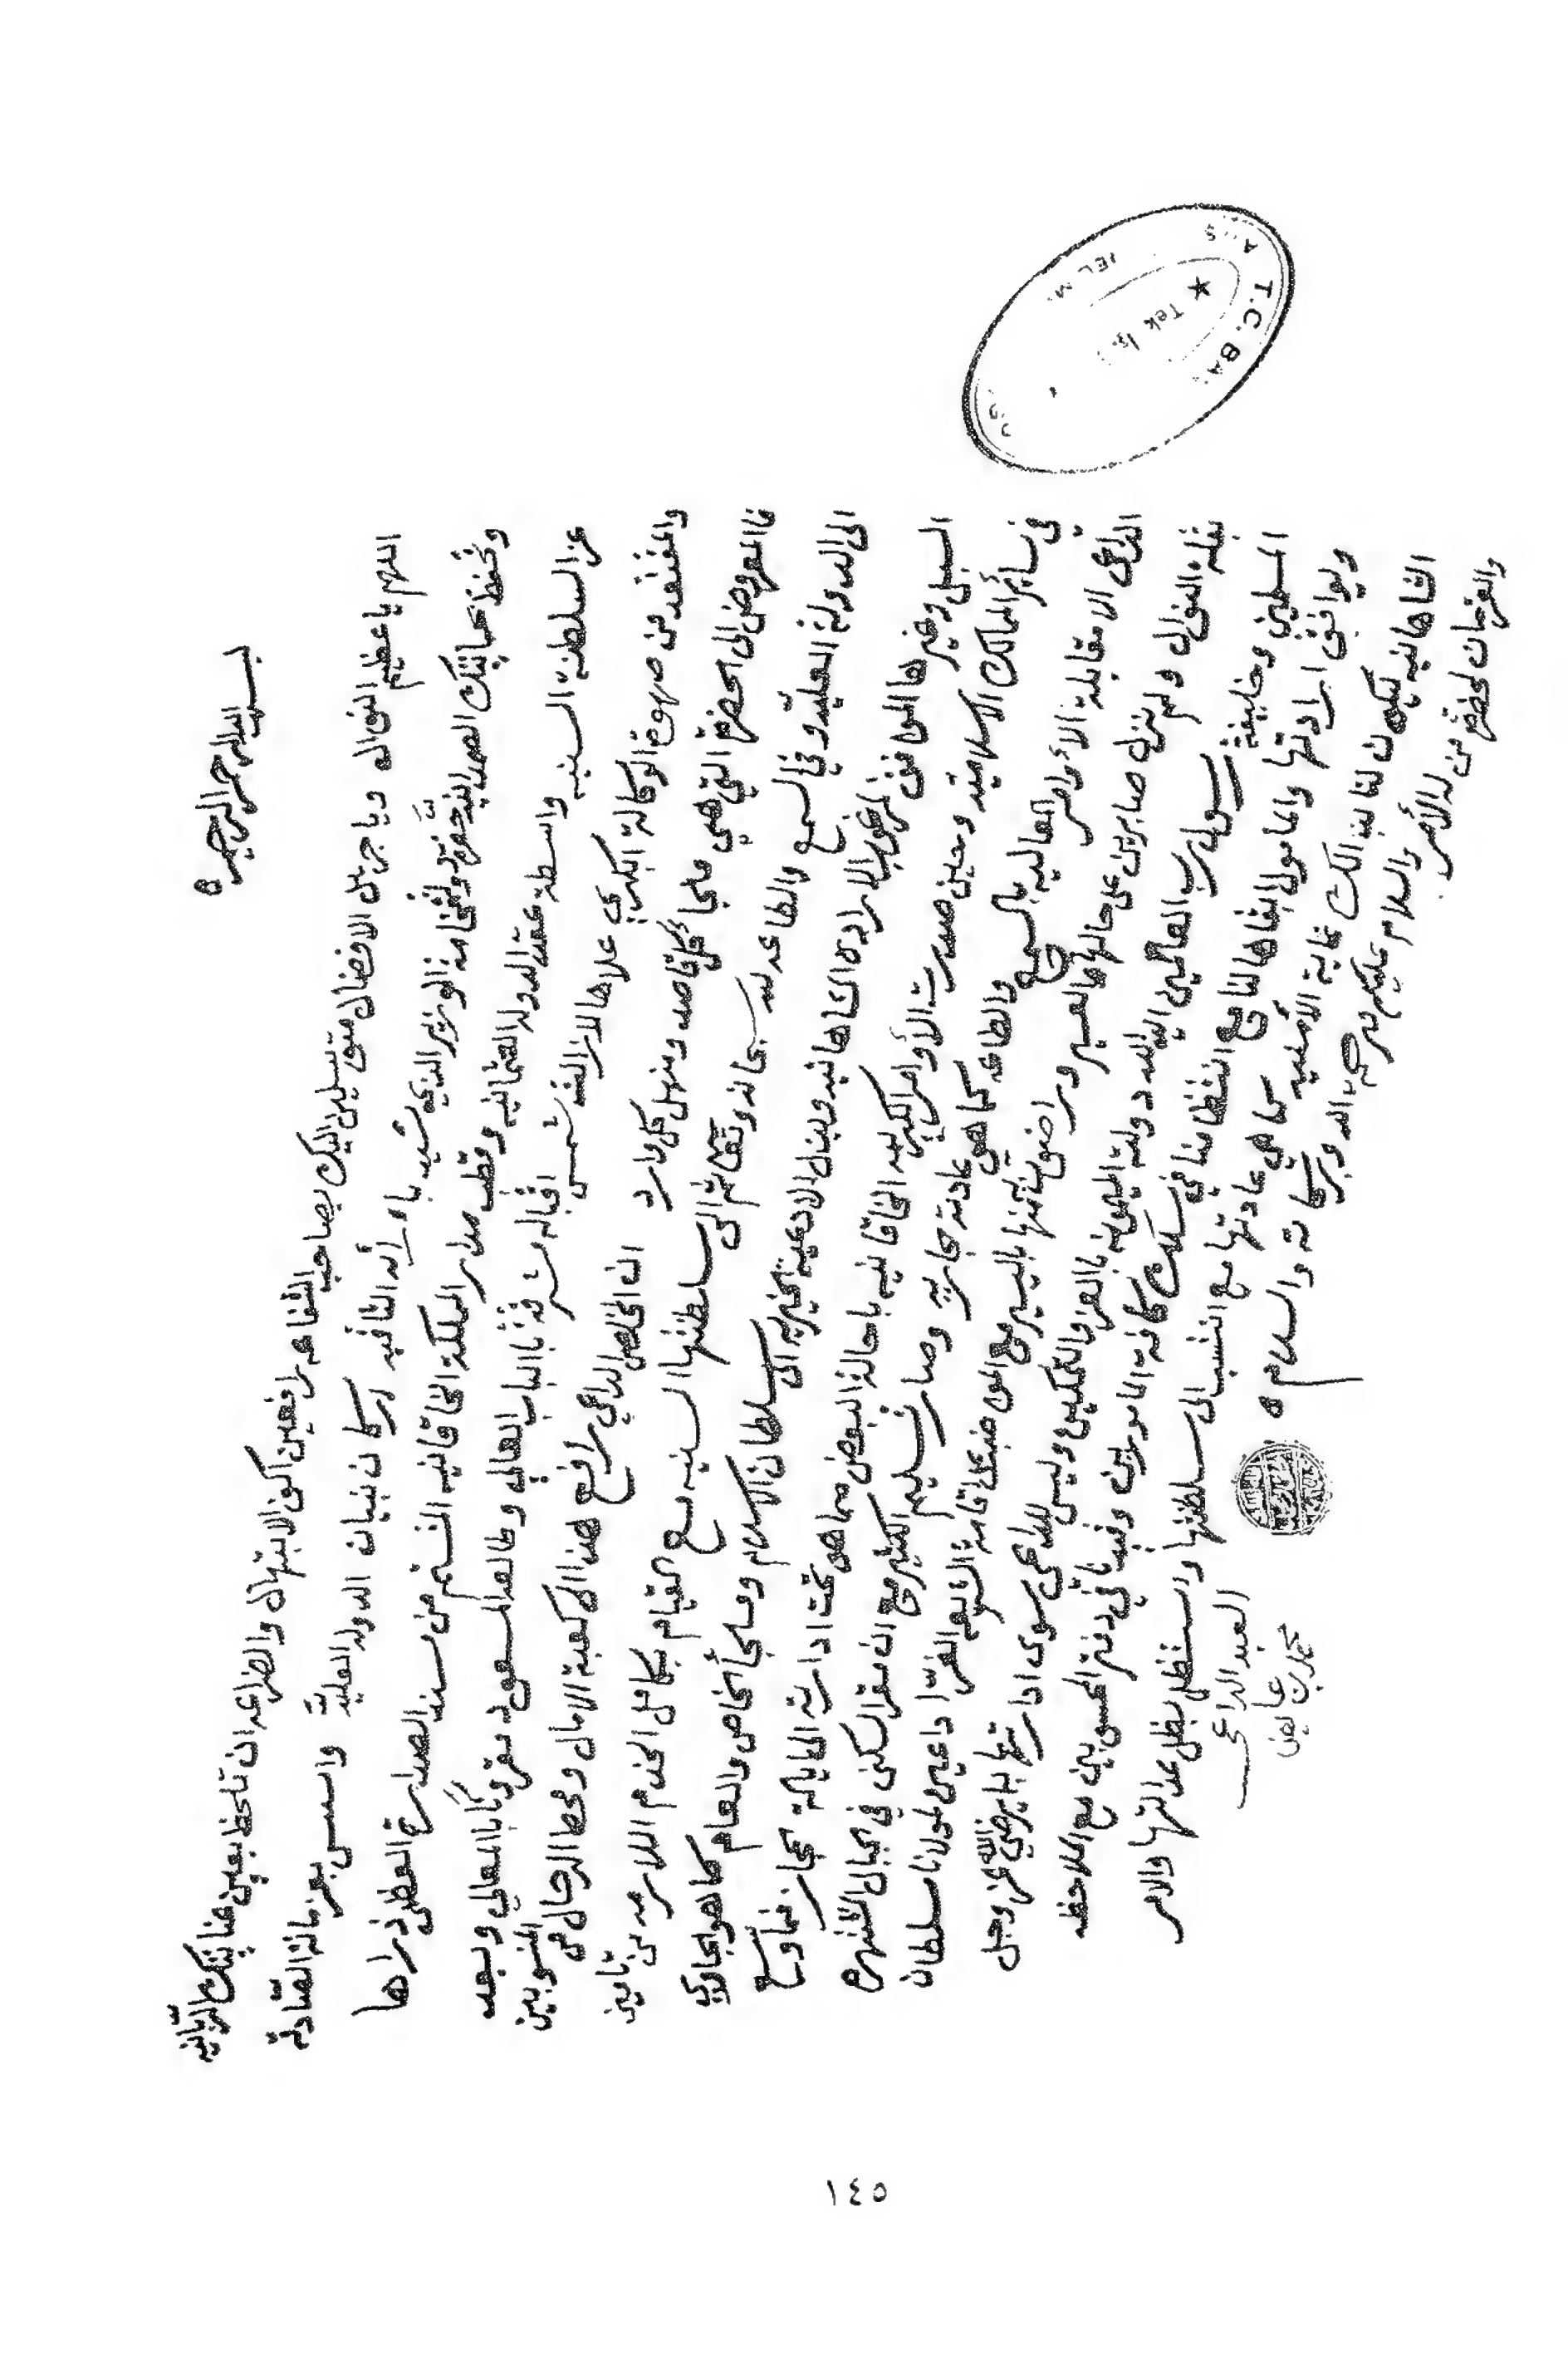 بسم الله الرحمن الرحيم
اللهم يا عظيم النوال ويا جزيل الافضال متوسلين اليك بصاحب الشفاعه رافعين اكف الابتهال والضراعه ان تلحظ بعين عنايتك الربانيه
وتحفظ بحمايتك الصمدانيه حضرة وفخامة الوزير الذي شيد بارائه الثاقبه اركان بنيان الدوله العليه واسس بعزماته الصادقه
عز السلطنة السنيه واسطة عقد الدوله العثمانيه وقطب مدار المملكة الخاقانيه المتسنم من سند الصدارة العظمى ذراها
والمقتعد من صهوة الوكالة الكبرى علاها لازالت شمس اقباله مشرقة باالباب العالي وطالعه المسعود مقرونًا باالمعالي وبعد
فاالمعروض الى الحضرة التي هي ملجأ كل قاصد ومنهل كل وارد ان المخلص الداعي رافع هذا الى كعبة الامال ومحط الرحال من المنسوبين
الى الدولة العليّه وفي السمع والطاعه لله سبحانه وتعالى ثم الى سلطنتها السنيه مع القيام بكامل الخدم اللازمه من تامين
السبل وغيرها الموافق لمرغوب الاراده الشاهانيه وبذل الادعية الخيريه الى سلطان الاسلام وملجأ الخاص والعام كما هو الجاري
في سائر الممالك الاسلاميه وحين صدرت الأوامر الكريمه الخاقانيه باحالة البعض مما هو تحت ادارته الى ايالة حجاز فما وسع
الداعي الا مقابلة الأوامر العاليه باالسمع والطاعه كما هي عادته جاريه وصار تسليم الكثير مع ان مقر السكنى في الجبال المشتهره
بقلة النوال ولم نزل صابرين على حالها العسير وراضون منها باليسير مع المواضبه على اقامة الشريعه الغرّا داعين لمولانا سلطان
المسلمين وخليفة رسول رب العالمين ايد الله دولته الميمونه باالعز والتمكين وليس للداعي سوى ادارتها بما يرضي الله عز وجل
ويوافق ارادتها والمامول ابقاها لنا مع انتظامنا في سلك كافة المامورين وقيدنا في دفتر المحسوبين مع الملاحظه
الشاهانيه ليكون لنا بذالك غاية الأمنيه كما هي عادتها مع المنتسب الى سلطنتها واستظل بظل عدالتها والامر
والفرمان لحضرة من له الأمر والسلام عليكم ورحمة الله وبركاته والسلام
العبد الداعي
محمد بن عايض
T.C. BA
Tek
١٤٥